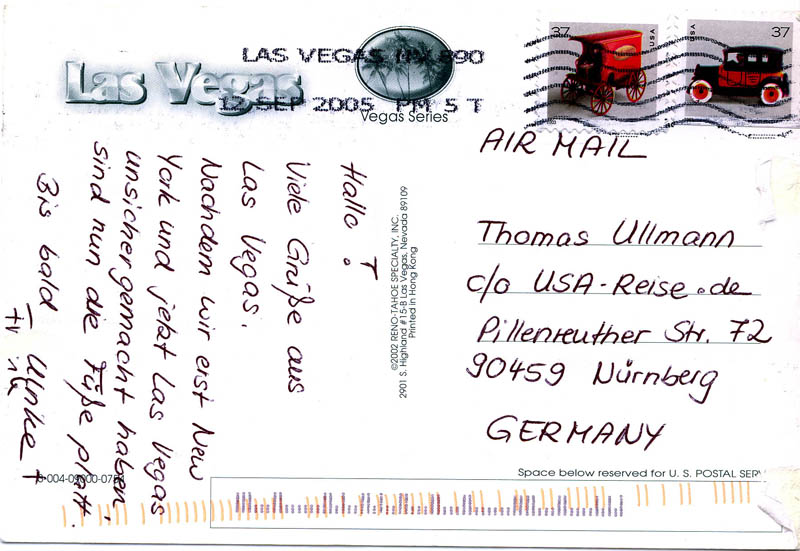 Las Vegas
LAS VEGAS NV 890
12 SEP 2005 PM 5 T
Vegas Series
37 USA
37 USA
AIR MAIL
Hallo T.
Viele Grüße aus
Las Vegas.
Nachdem wir erst New
York und jetzt Las Vegas
unsicher gemacht haben,
sind nun die Füße platt.
Bis bald
Ulrike T
©2002 RENO-TAHOE SPECIALTY, INC.
2901 S. Highland #15-B Las Vegas, Nevada 89109
Printed in Hong Kong
Thomas Ullmann
c/o USA-Reise.de
Pillenreuther Str. 72
90459 Nürnberg
GERMANY
Space below reserved for U. S. POSTAL SERV